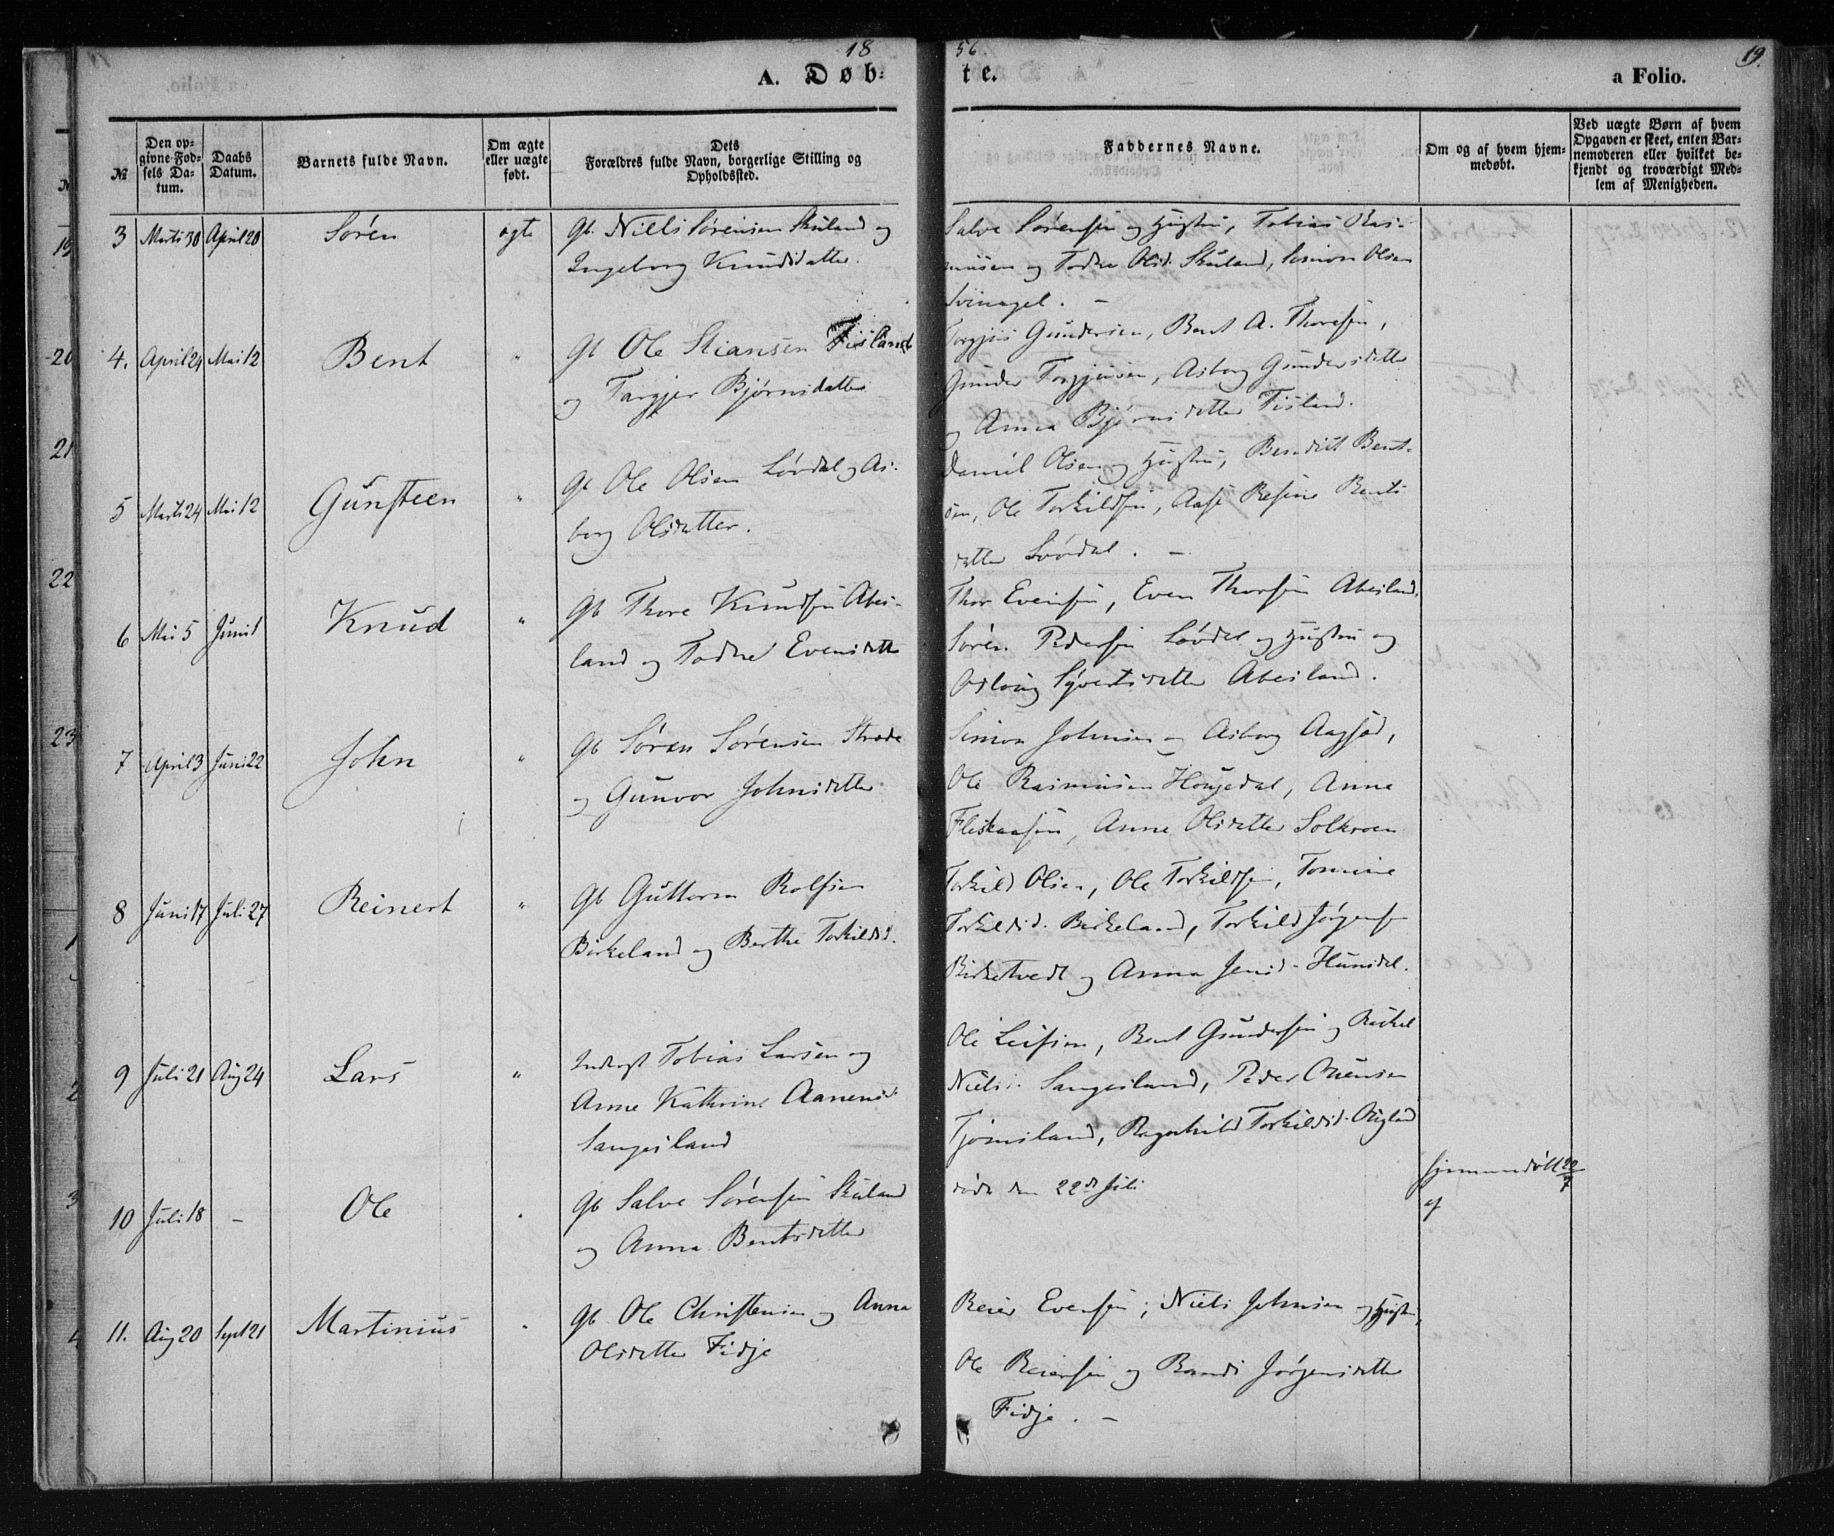 18 56 19.
A. Døb- te. a Folio.
№
Den opgivne Fødsels Datum.
Daabs Datum.
Barnets fulde Navn.
Om ægte eller uægte født.
Dets Forældres fulde Navn, borgerlige Stilling og Opholdssted.
Faddernes Navne.
Om og af hvem hjemmedøbt.
Ved uægte Børn af hvem Opgaven er skeet, enten Barnemoderen eller hvilket bekjendt og troværdigt Medlem af Menigheden.
3 Marts 30 April 20 Søren ægte Gb Niels Sørensen Skuland og
Ingeborg Knudsdatter.
Salve Sørensen og Hustru, Tobias Ras-
musen og Todne Olsd. Skuland, Simon Olsen
4. April 24 Mai 12 Bent " Gb Ole Stiansen Fisland
og Targjer Bjørnsdatter
Torgjus Gundersen, Bent A. Thoresen,
Gunder Torgjusen, Asborg Gundersdatter
og Anna Bjørnsdatter Fisland.
5 Marts 24 Mai 12 Gunsteen " Gb Ole Olsen Løvdal og As-
borg Olsdatter.
Daniel Olsen og Hustru, Benedict Bent-
sen, Ole Torkildsen, Aase Resine Bents
datter Løvdal. -
6 Mai 5 Juni 1 Knud " Gb Thore Knudsen Abes-
land og Todne Evensdatter
Thor Evensen, Even Thorsen Abesland,
Søren Pedersen Løvdal og Hustru og
Aslaug Syvertsdatter Abesland.
7 April 3 Juni 22 John " Gb Søren Sørensen Strøde
og Gunvor Johnsdatter
Simon Johnsen og Asborg
Ole Rasmusen Hougedal, Anne
Anne Olsdatter
8 Juni 17 Juli 27 Reinert " Gb Guttorm Rolfsen
Birkeland og Berthe Torkildsd.
Torkild Olsen, Ole Torkildsen, Tomine
Torkildsd. Birkeland, Torkild Jørgens
Birketvedt og Anna Jensd. Hunsdal.
9 Juli 21 Aug 24 Lars " Inderst Tobias Larsen og
Anne Kathrine Aanensd.
Sangesland
Ole Leifsen, Bent Gundersen og Rachel
Nielsd. Sangesland, Peder
Tjomsland, Ragnhild Torkildsd.
10 Juli 18 - Ole " Gb Salve Sørensen Skuland
og Anna Bentsdatter
døde den 22de Juli
hjemmedøbt 22/7
af
11. Aug 20 Sept 21 Martinius " Gb Ole Christensen og Anna
Olsdatter Fidje
Reier Evensen, Niels Johnsen og Hustru,
Ole Reiersen og Randi Jørgensdatter
Fidje. -
19
20
21
22
23
1
2
3
4